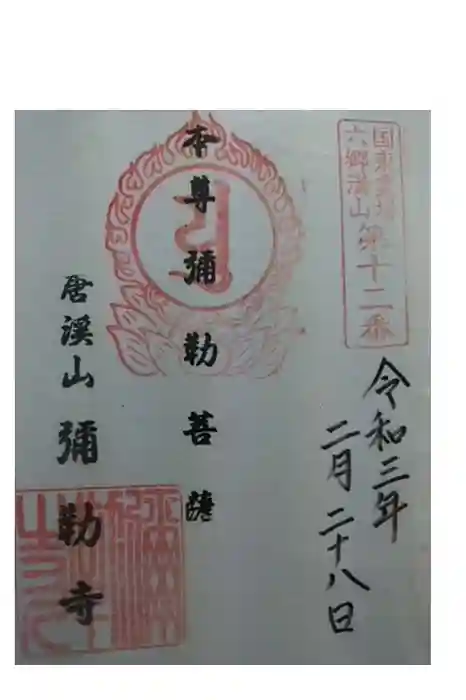 国東六郷満山
第十二番
令和三年
二月二十八日
本尊彌勒菩薩
唐溪山彌勒寺